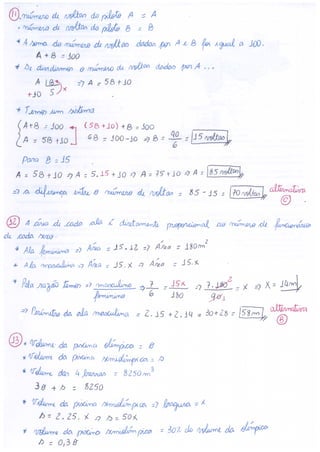 11) número de voltas do piloto A = A
• número de voltas do piloto B = B
* A soma do número de voltas dadas por A e B foi igual a 100.
A + B = 100
* Se dividirmos o número de voltas dadas por A ...
A | B => A = 5B + 10
+10 5 x
* Temos um sistema
{ A + B = 100 (5B + 10) + B = 100
A = 5B + 10 6B = 100 - 10 => B = 90/6 = 15 voltas
para B = 15
A = 5B + 10 => A = 5.15 + 10 => A = 75 + 10 => A = 85 voltas
=> a diferença entre o número de voltas = 85 - 15 = 70 voltas alternativa
C
12) A área de cada ala é diretamente proporcional ao número de funcionários
de cada sexo
* Ala feminina => Área = 15.12 => Área = 180m²
* Ala masculina => Área = 15.X => Área = 15.X
* Pela razão temos => masculina/feminina => 7/6 = 15X/180 => 7.180/90 = X => X = 14m
=> Perímetro da ala masculina = 2.15 + 2.14 = 30 + 28 = 58m alternativa
B
13) * Volume da piscina olímpica = B
* Volume da piscina semiolímpica = s
* Volume das 4 piscinas = 8250m³
3B + s = 8250
* Volume da piscina semiolímpica => largura = X
s = 2.25.X => s = 50X
* volume da piscina semiolímpica = 30% do volume da olímpica
s = 0,3B